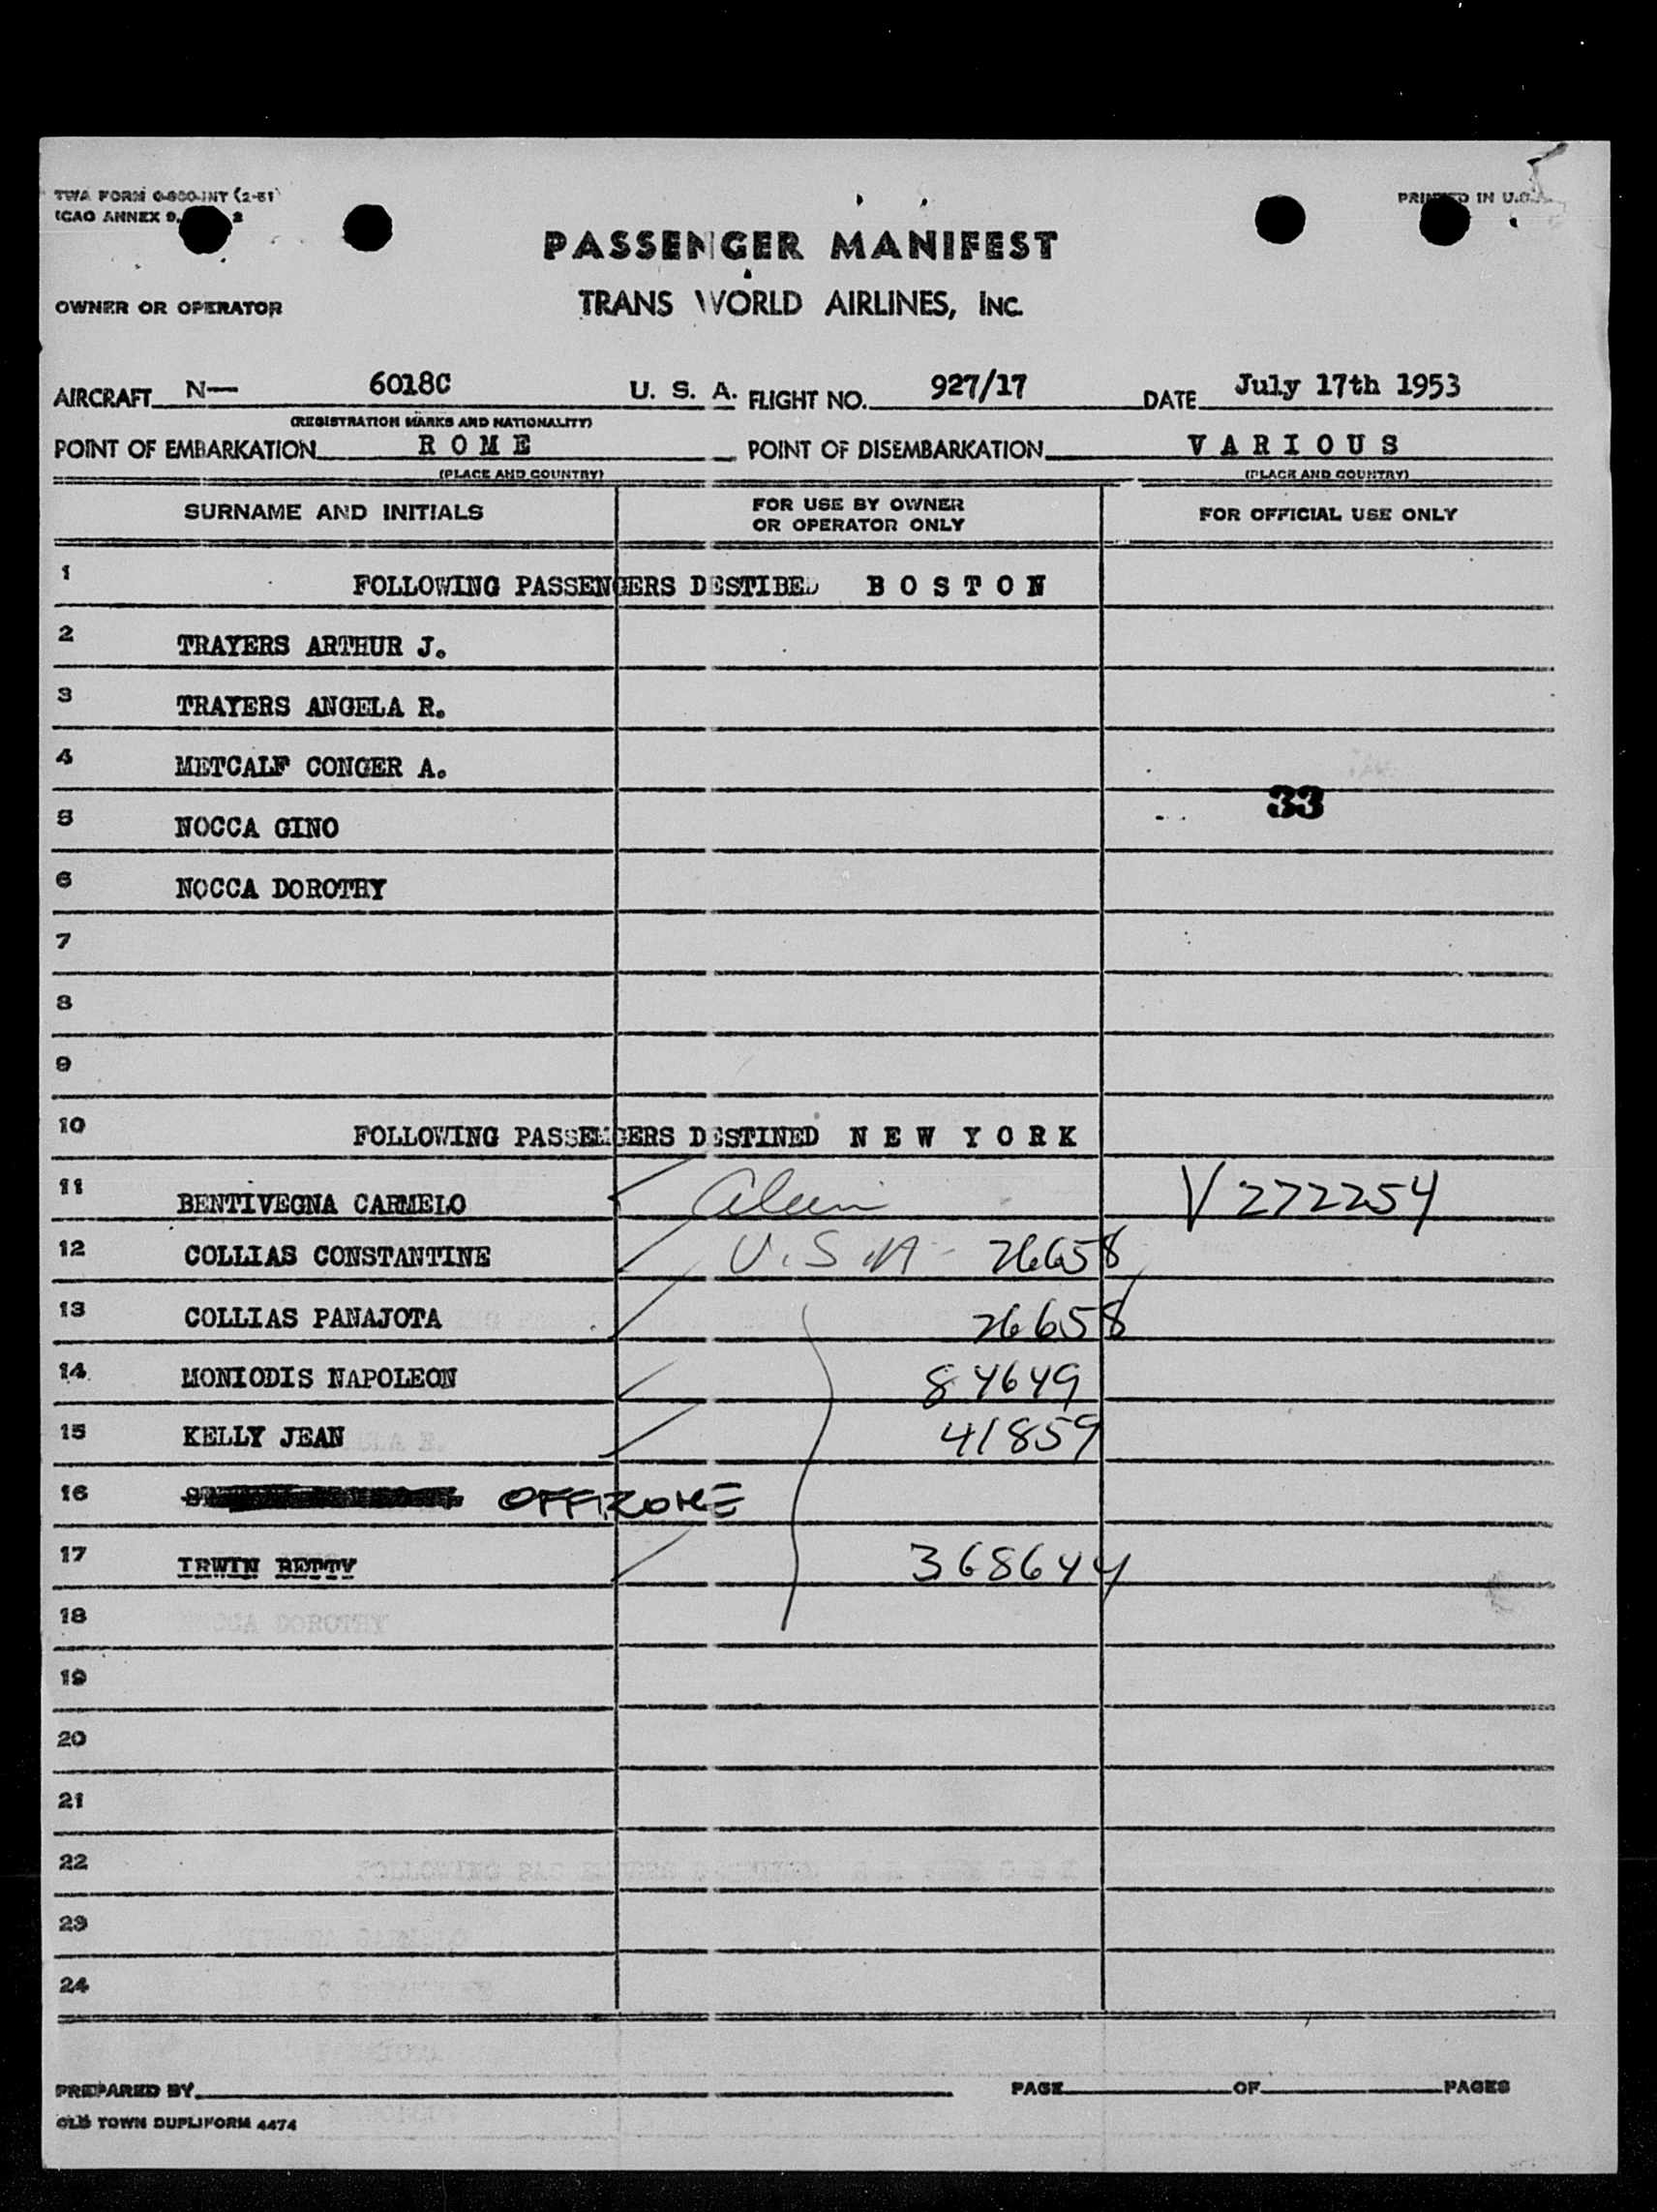 TWA FORM 0-800-INT (2-51)
ICAO ANNEX 9, 2
PRINTED IN U.S.A.
PASSENGER MANIFEST
OWNER OR OPERATOR
TRANS WORLD AIRLINES, INC.
AIRCRAFT N— 6018C U. S. A. FLIGHT NO. 927/17 DATE July 17th 1953
(REGISTRATION MARKS AND NATIONALITY)
POINT OF EMBARKATION R O M E POINT OF DISEMBARKATION V A R I O U S
(PLACE AND COUNTRY) (PLACE AND COUNTRY)
SURNAME AND INITIALS FOR USE BY OWNER OR OPERATOR ONLY FOR OFFICIAL USE ONLY
1 FOLLOWING PASSENGERS DESTIBED B O S T O N
2 TRAYERS ARTHUR J.
3 TRAYERS ANGELA R.
4 METCALF CONGER A.
33
5 NOCCA GINO
6 NOCCA DOROTHY
7
8
9
10 FOLLOWING PASSENGERS DESTINED N E W Y O R K
11 BENTIVEGNA CARMELO alien V 272254
12 COLLIAS CONSTANTINE U.S.A - 26658
13 COLLIAS PANAJOTA 26658
14 MONIODIS NAPOLEON 84649
15 KELLY JEAN 41859
16 OFF ROME
17 IRWIN BETTY 368644
18
19
20
21
22
23
24
PREPARED BY PAGE OF PAGES
OLD TOWN DUPLIFORM 4474